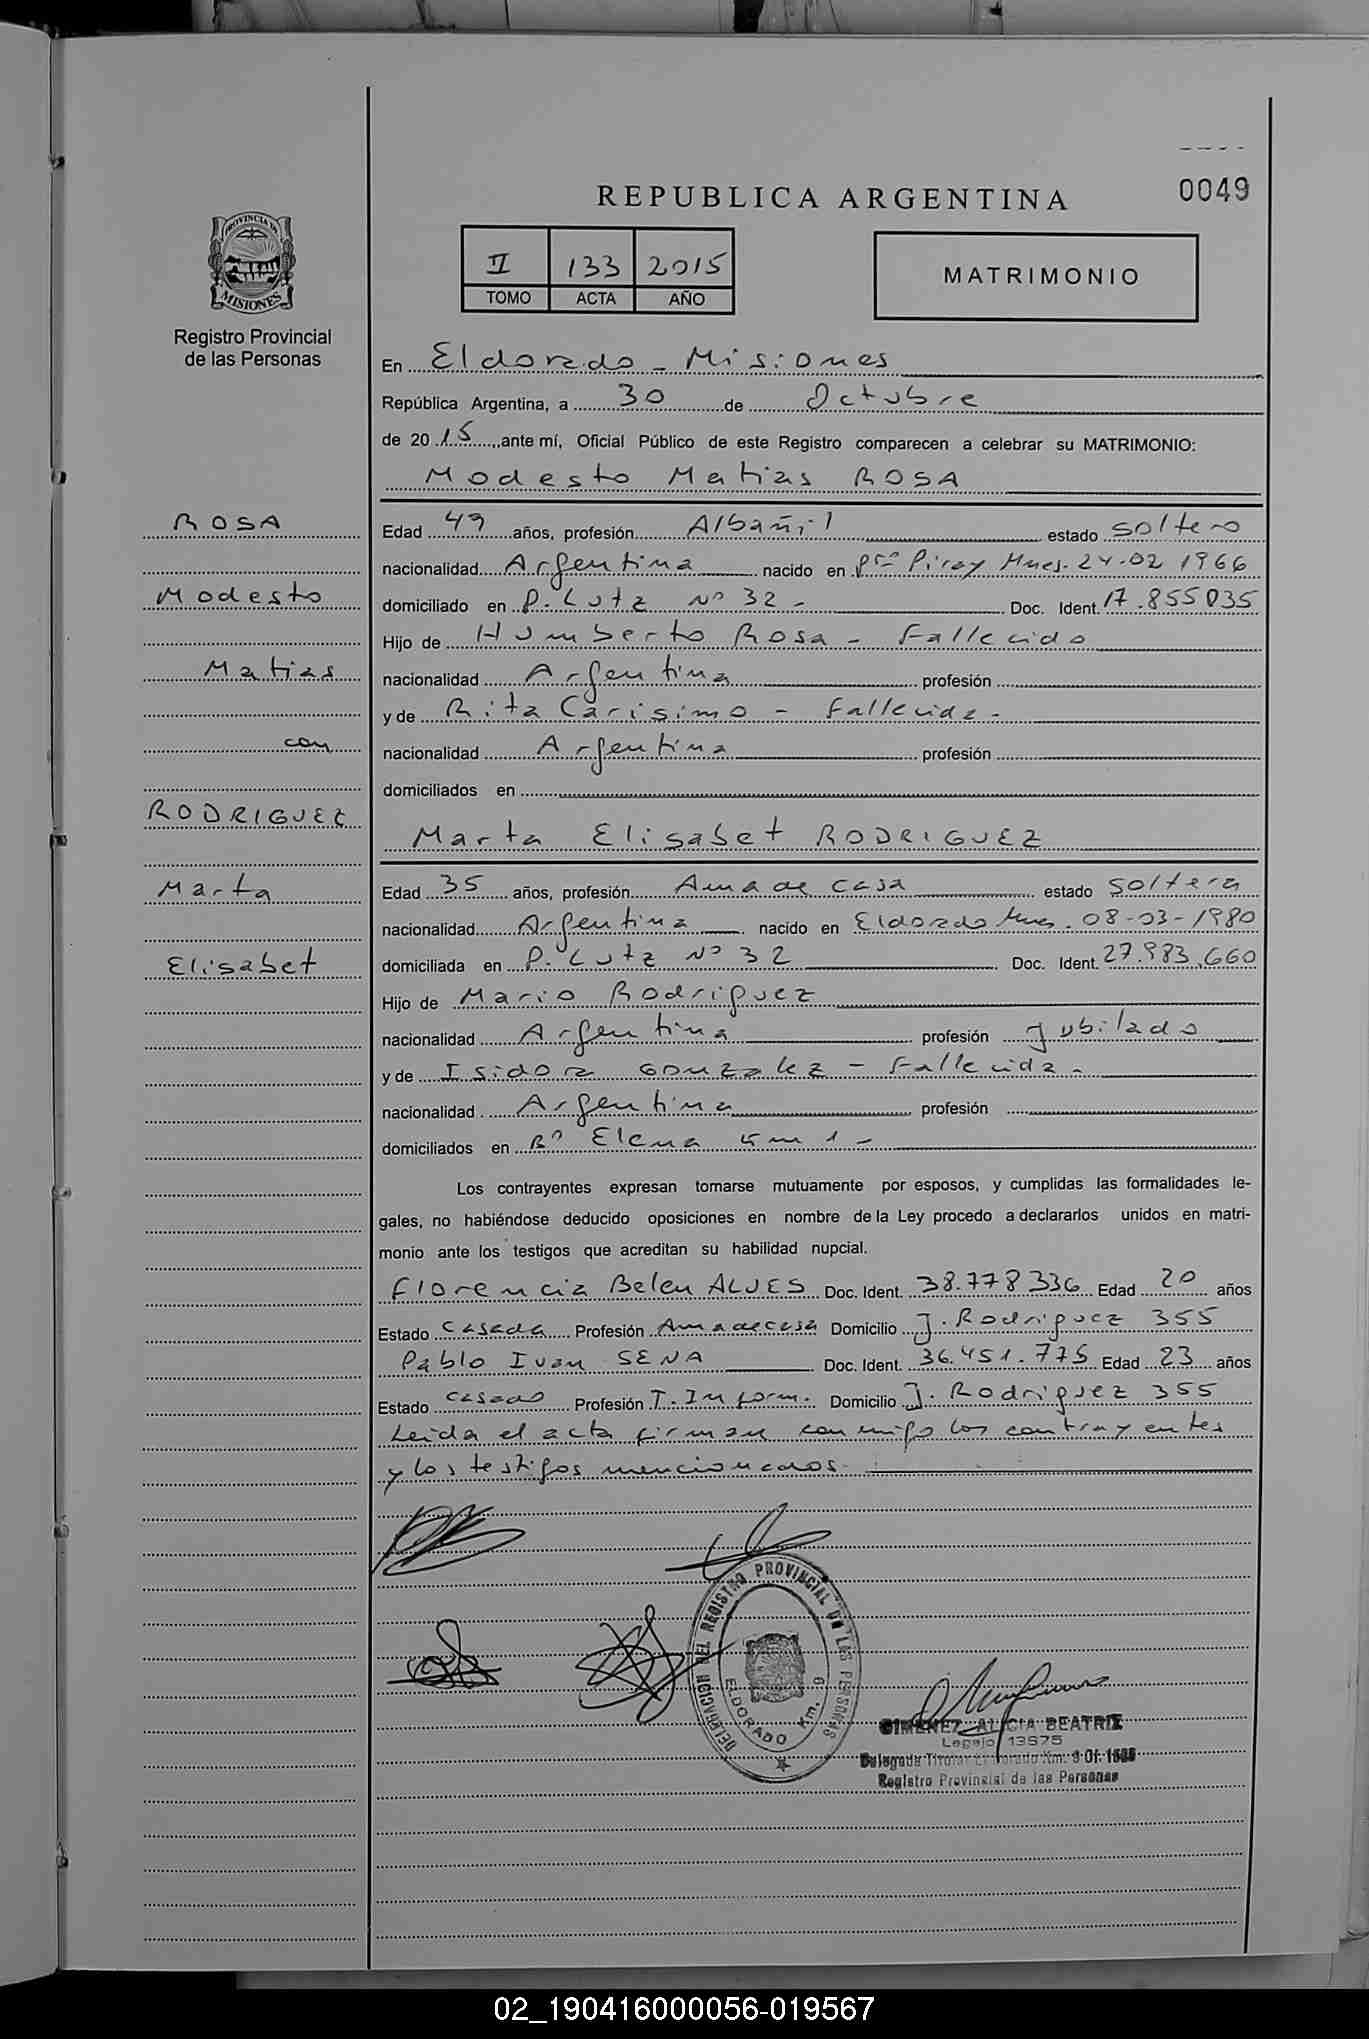 0049
REPUBLICA ARGENTINA
PROVINCIA DE
MISIONES
Registro Provincial
de las Personas
II 133 2015
TOMO ACTA AÑO
MATRIMONIO
En Eldorado - Misiones
República Argentina, a 30 de Octubre
de 20 15, ante mí, Oficial Público de este Registro comparecen a celebrar su MATRIMONIO:
Modesto Matias ROSA
ROSA
Modesto
Matias
con
RODRIGUEZ
Marta
Elisabet
Edad 49 años, profesión Albañil estado soltero
nacionalidad Argentina nacido en Pto Piray Mnes. 24-02 1966
domiciliado en P. Lutz Nº 32 - Doc. Ident. 17.855035
Hijo de Humberto Rosa - Fallecido
nacionalidad Argentina profesión
y de Rita Carisimo - Fallecida -
nacionalidad Argentina profesión
domiciliados en
Marta Elisabet RODRIGUEZ
Edad 35 años, profesión Ama de casa estado soltera
nacionalidad Argentina nacido en Eldorado Mnes. 08-03-1980
domiciliada en P. Lutz Nº 32 Doc. Ident. 27.983.660
Hijo de Mario Rodriguez
nacionalidad Argentina profesión Jubilado
y de Isidora Gonzalez - Fallecida -
nacionalidad Argentina profesión
domiciliados en Bº Elena Km 1 -
Los contrayentes expresan tomarse mutuamente por esposos, y cumplidas las formalidades le-
gales, no habiéndose deducido oposiciones en nombre de la Ley procedo a declararlos unidos en matri-
monio ante los testigos que acreditan su habilidad nupcial.
Florencia Belen ALVES Doc. Ident. 38.778336 Edad 20 años
Estado Casada Profesión Ama de casa Domicilio J. Rodriguez 355
Pablo Ivan SENA Doc. Ident. 36.451.775 Edad 23 años
Estado casado Profesión T. Inform. Domicilio J. Rodriguez 355
Leida el acta firman conmigo los contrayentes
y los testigos mencionados.
DELEGACION DEL REGISTRO PROVINCIAL DE LAS PERSONAS
ELDORADO Km. 9
GIMENEZ, ALICIA BEATRIZ
Legajo 13575
Delegada Titular Eldorado Km. 9 Of.
Registro Provincial de las Personas
02_190416000056-019567